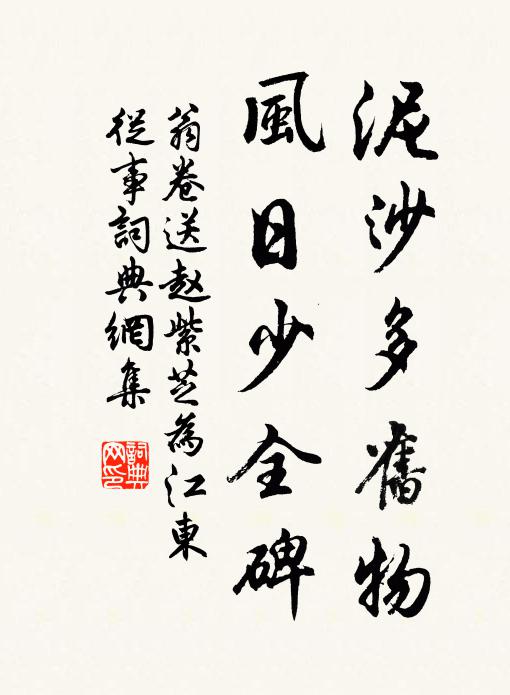 泥沙多舊物
風日少全碑
翁卷送赵紫芝為江東
從事詞典網集
詞典
网印